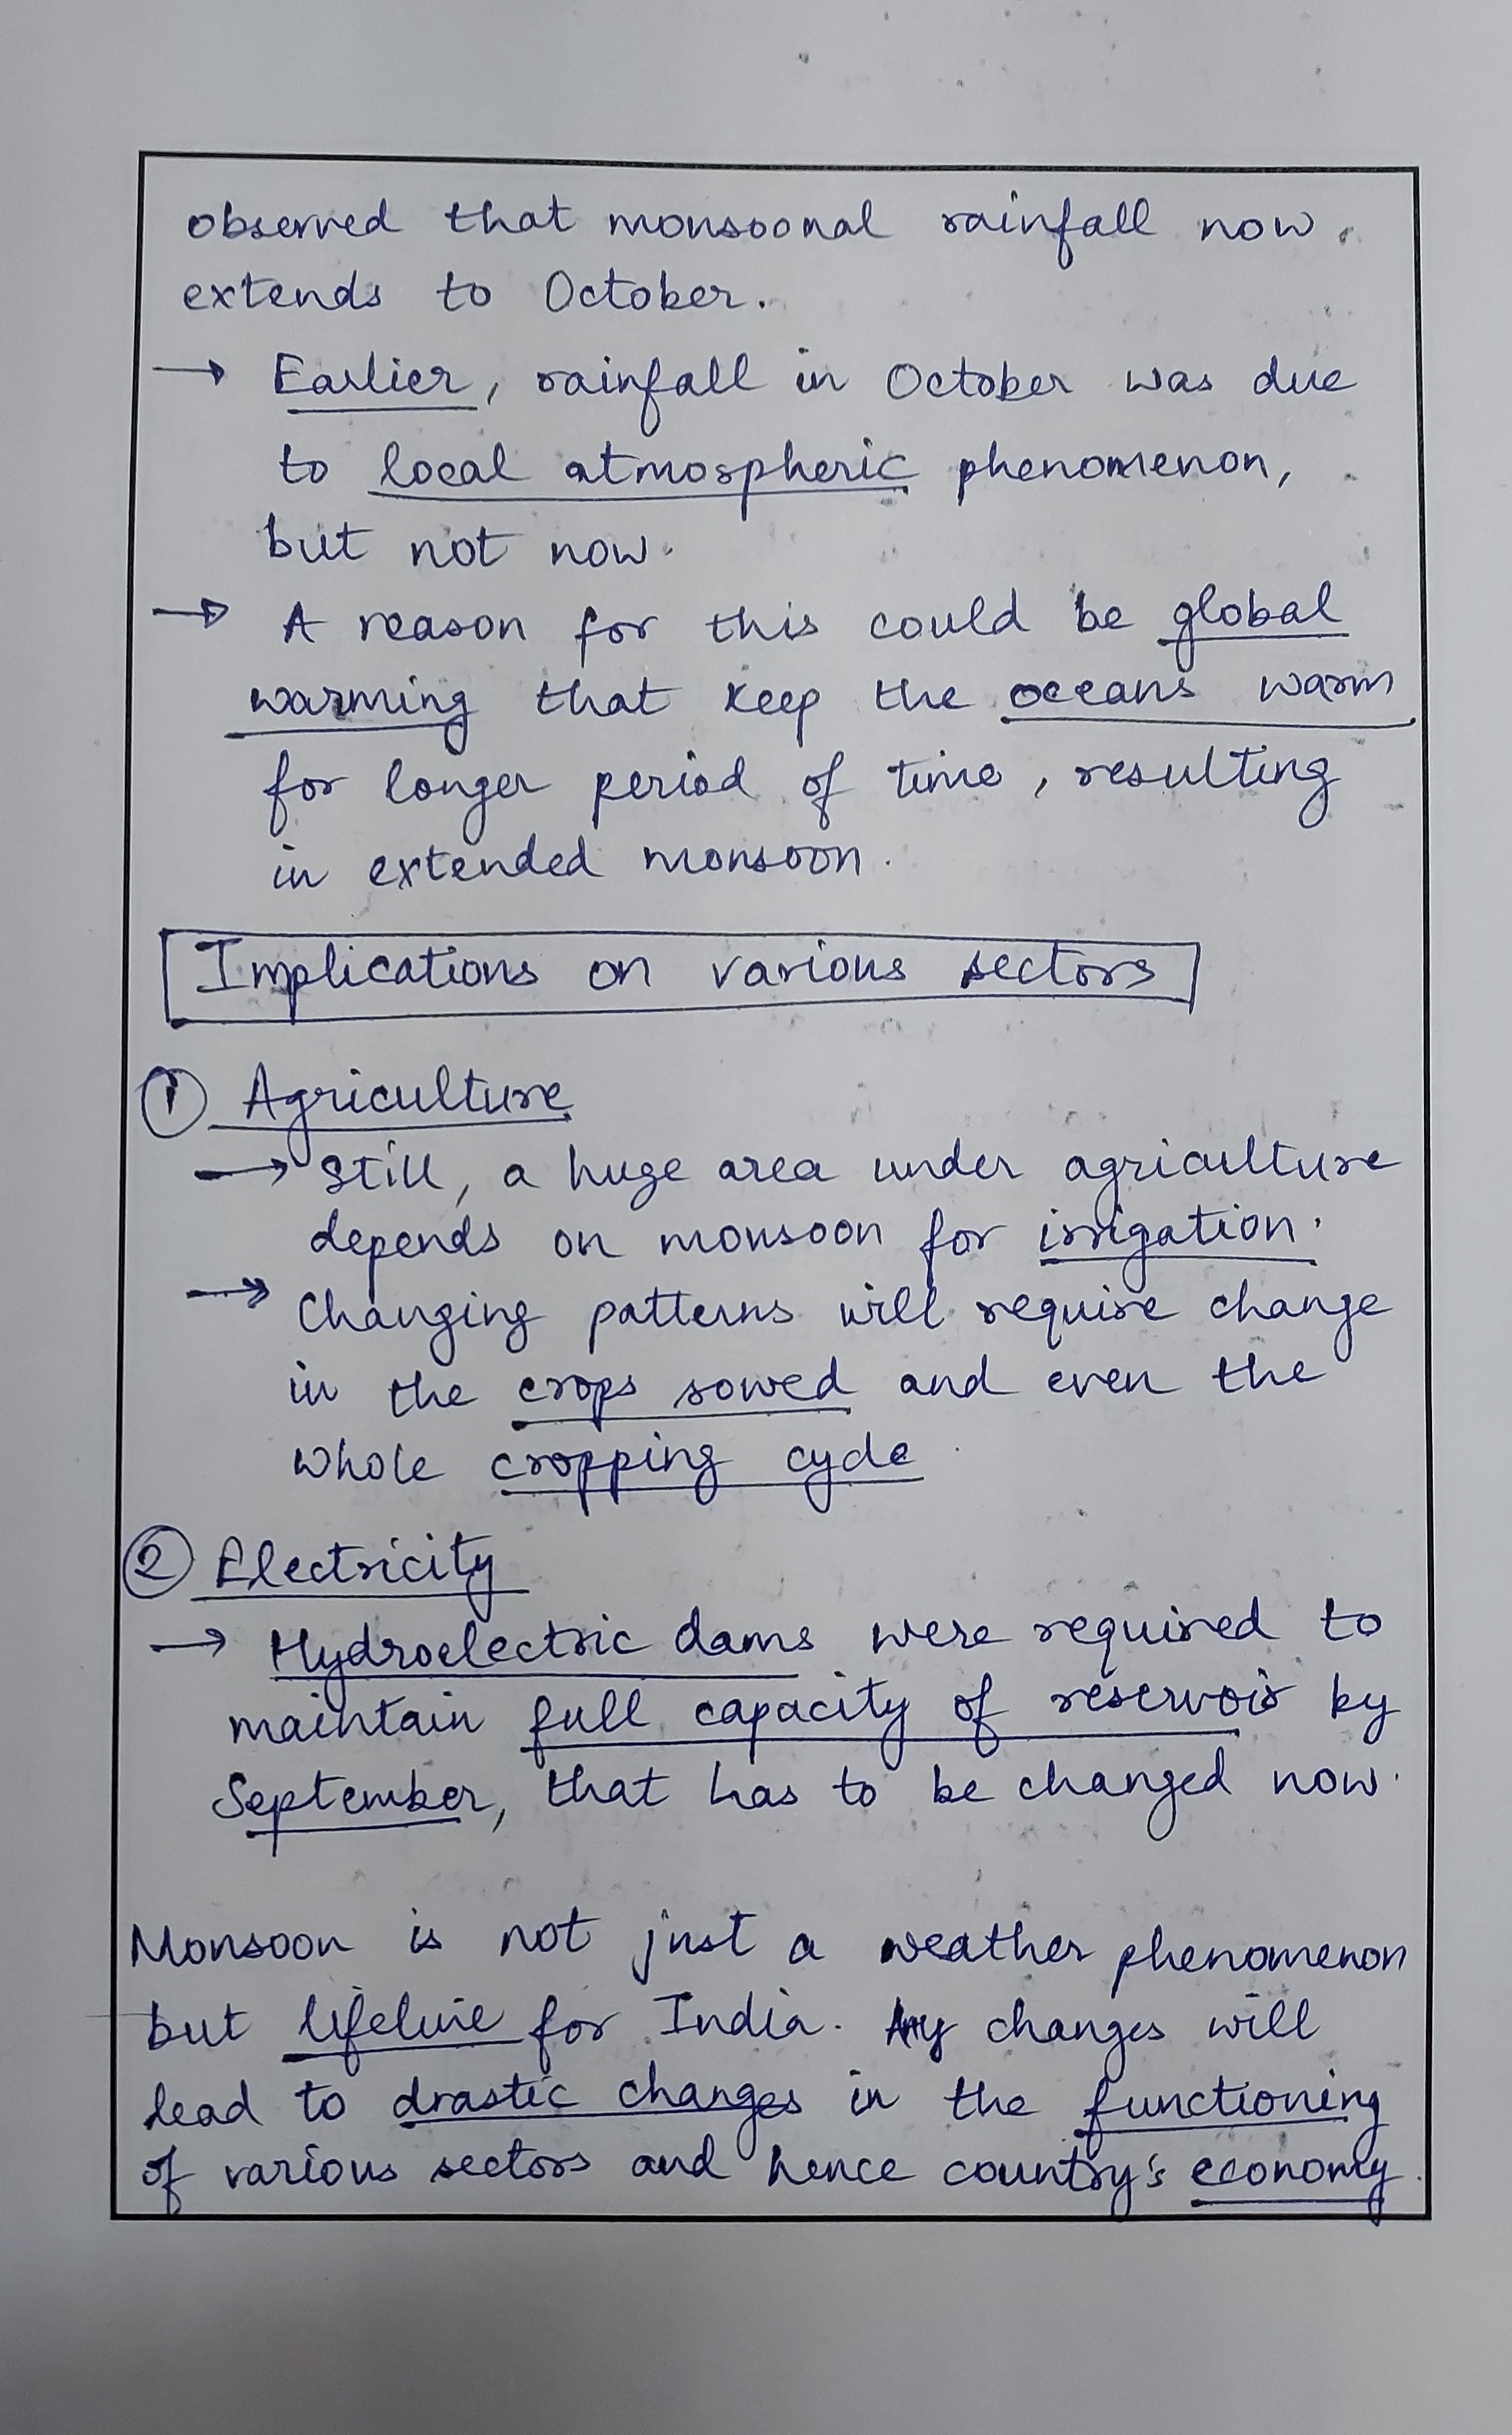 observed that monsoonal rainfall now
extends to October.
→ Earlier, rainfall in October was due
to local atmospheric phenomenon,
but not now.
→ A reason for this could be global
warming that keep the oceans warm
for longer period of time, resulting
in extended monsoon.
Implications on various sectors
① Agriculture
→ Still, a huge area under agriculture
depends on monsoon for irrigation.
→ Changing patterns will require change
in the crops sowed and even the
whole cropping cycle
② Electricity
→ Hydroelectric dams were required to
maintain full capacity of reservoir by
September, that has to be changed now.
Monsoon is not just a weather phenomenon
but lifeline for India. Any changes will
lead to drastic changes in the functioning
of various sectors and hence country's economy.